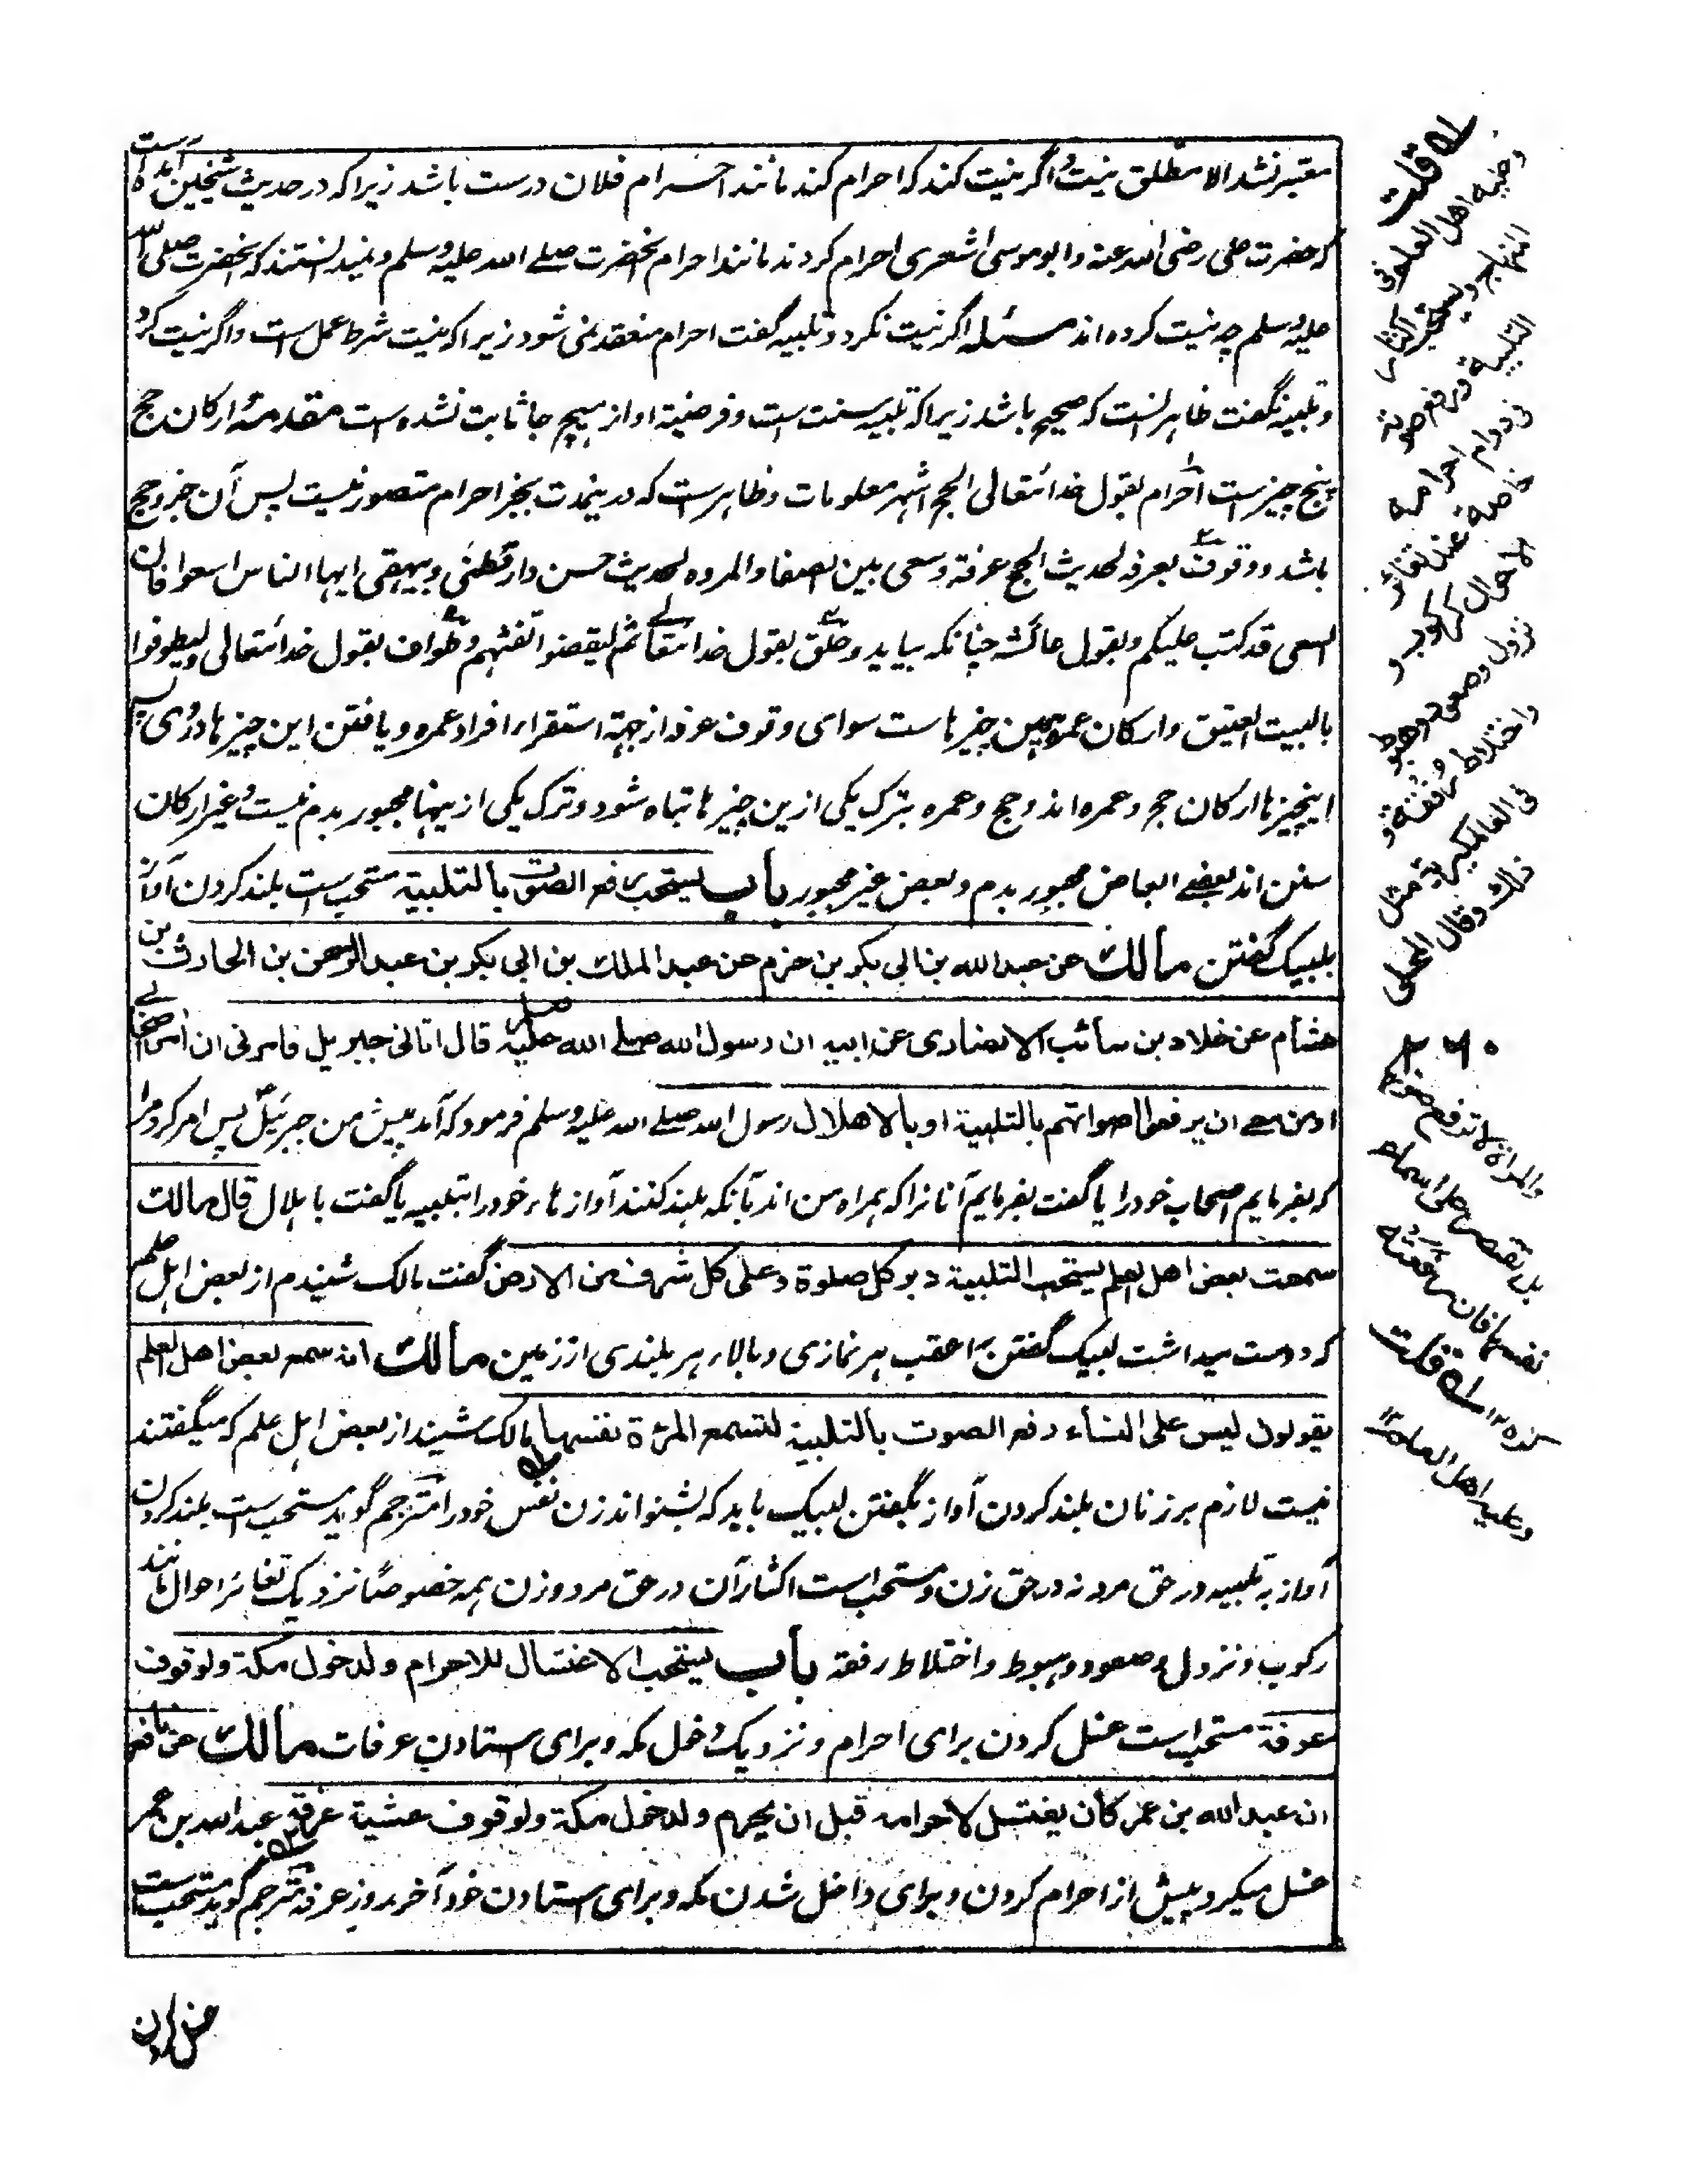 معتبر نشد الا مطلق نیت و اگر نیت کند که احرام کند مانند احرام فلان درست باشد زیرا که در حدیث شیخین آمده است
که حضرت علی رضی الله عنه و ابو موسی اشعری احرام کردند مانند احرام آنحضرت صلے الله علیه وسلم و نمیدانستند که آنحضرت صلی الله
علیه وسلم چه نیت کرده اند مسئله اگر نیت نکرد و تلبیه گفت احرام منعقد نمی شود زیرا که نیت شرط عمل است و اگر نیت کرد
و تلبیه نگفت ظاهر آنست که صحیح باشد زیرا که تلبیه سنت است و فرضیة او از هیچ جا ثابت نشده است مقدمه ارکان حج
پنج چیز است احرام بقول خدا تعالی الحج اشهر معلومات و ظاهر است که درینمدت بجز احرام متصور نیست پس آن جزو حج
باشد و وقوف بعرفه لحدیث الحج عرفة و سعی بین الصفا و المروه لحدیث حسن دارقطنی و بیهقی ایها الناس اسعوا فان
السعی قد کتب علیکم و بقول عائشه چنانکه بیاید و حلق بقول خدا تعالے ثم لیقضوا تفثهم و طواف بقول خدا تعالی ولیطوفوا
بالبیت العتیق و ارکان عمره همین چیزها ست سوای وقوف عرفه از جهة استقرار افراد عمره و یافتن این چیزها در وی پس
اینچیزها ارکان حج و عمره اند و حج و عمره بترک یکی ازین چیزها تباه شود و ترک یکی ازینها مجبور بدم نیست و غیر ارکان
سنن اند بعضے ابعاض مجبور بدم و بعض غیر مجبور باب یستحب رفع الصوت بالتلبیة مستحب است بلند کردن آواز
بلبیک گفتن مالک عن عبد الله بن ابی بکر بن حزم عن عبد الملک بن ابی بکر بن عبد الرحمن بن الحارث بن
هشام عن خلاد بن سائب الانصاری عن ابیه ان رسول الله صلے الله علیه وسلم قال اتانی جبریل فامرنی ان آمر اصحابے
او من معے ان یرفعوا اصواتهم بالتلبیة او بالاهلال رسول الله صلے الله علیه وسلم فرمود که آمد پیش من جبرئیل پس امر کرد مرا
که بفرمایم اصحاب خود را یا گفت بفرمایم آنانرا که همراه من اند بآنکه بلند کنند آوازهاء خود را بتلبیه یا گفت باهلال قال مالک
سمعت بعض اهل العلم یستحب التلبیة دبر کل صلوة و علی کل شرف من الارض گفت مالک شنیدم از بعض اهل علم
که دوست میداشت لبیک گفتن را عقب هر نمازی و بالاء هر بلندی از زمین مالک انه سمع بعض اهل العلم
یقولون لیس علی النساء رفع الصوت بالتلبیة لتسمع المرءة نفسها مالک شنید از بعض اهل علم که میگفتند
نیست لازم بر زنان بلند کردن آواز بگفتن لبیک باید که بشنواند زن نفس خود را مترجم گوید مستحب است بلند کردن
آواز به تلبیه در حق مرد نه در حق زن و مستحب است اکثار آن در حق مرد و زن همه خصوصًا نزدیک تغائر احوال مانند
رکوب و نزول و صعود و هبوط و اختلاط رفقه باب یستحب الاغتسال للاحرام ولدخول مکة ولوقوف
عرفة مستحب است غسل کردن برای احرام و نزدیک دخول مکه و برای استادن عرفات مالک عن نافع
ان عبد الله بن عمر کان یغتسل لاحرامه قبل ان یحرم ولدخول مکة ولوقوف عشیة عرفة عبد الله بن عمر
غسل میکرد پیش از احرام کردن و برای داخل شدن مکه و برای استادن خود آخر روز عرفه مترجم گوید مستحب است
غسل کردن
له قلت
وعلیه اهل العلم وفی
المنهاج ویستحب اکثار
التلبیة ورفع صوته
فی دوام احرامه
خاصة عند تغائر
الاحوال کرکوب و
نزول وصعود وهبوط
واختلاط رفقة و
فی العالمگیریة مثل
ذلک وقال المحلی
والمرأة لا ترفع صوتها
بل تقتصر علی اسماع
نفسها فان رفعته
کره ۱۲ سله قلت
وعلیه اهل العلم ۱۲